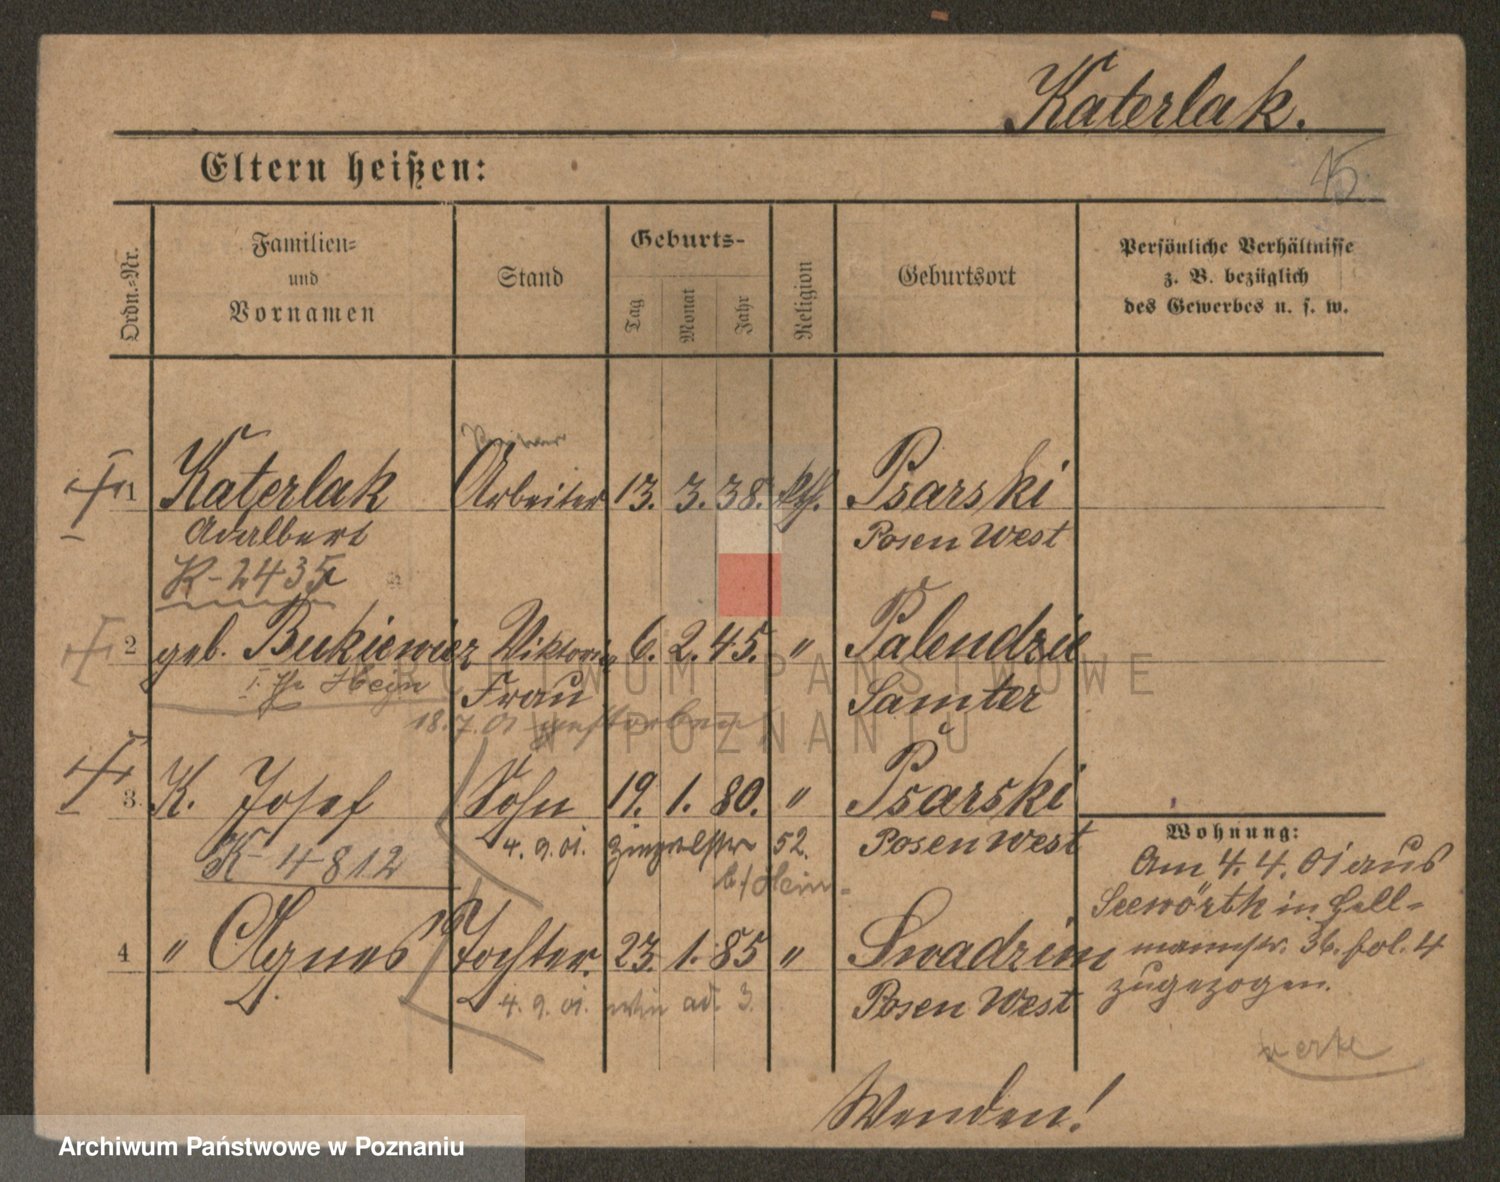 Katerlak.
15
Eltern heißen:
Ordn.-Nr.
Familien-
und
Vornamen
Stand
Geburts-
Tag
Monat
Jahr
Religion
Geburtsort
Persönliche Verhältnisse
z. B. bezüglich
des Gewerbes u. s. w.
1 Katerlak Arbeiter 13. 3. 38. kth. Psarski
Adalbert Posen West
K-2435
2 geb. Bukiewicz Viktoria 6. 2. 45. " Palendzie
Frau Samter
18.7.01 gestorben
3. K. Josef Sohn 19. 1. 80. " Psarski
4. 9. 01. 52. Posen West
K-4812
4 " Agnes Tochter. 23. 1. 85 " Swadzim
4. 9. 01. wie ad. 3. Posen West
Wohnung:
Am 4. 4. 01 aus
Seewörth in Hell-
mannstr. 36. pol. 4
zugezogen.
Wenden!
ARCHIWUM PAŃSTWOWE
W POZNANIU
Archiwum Państwowe w Poznaniu